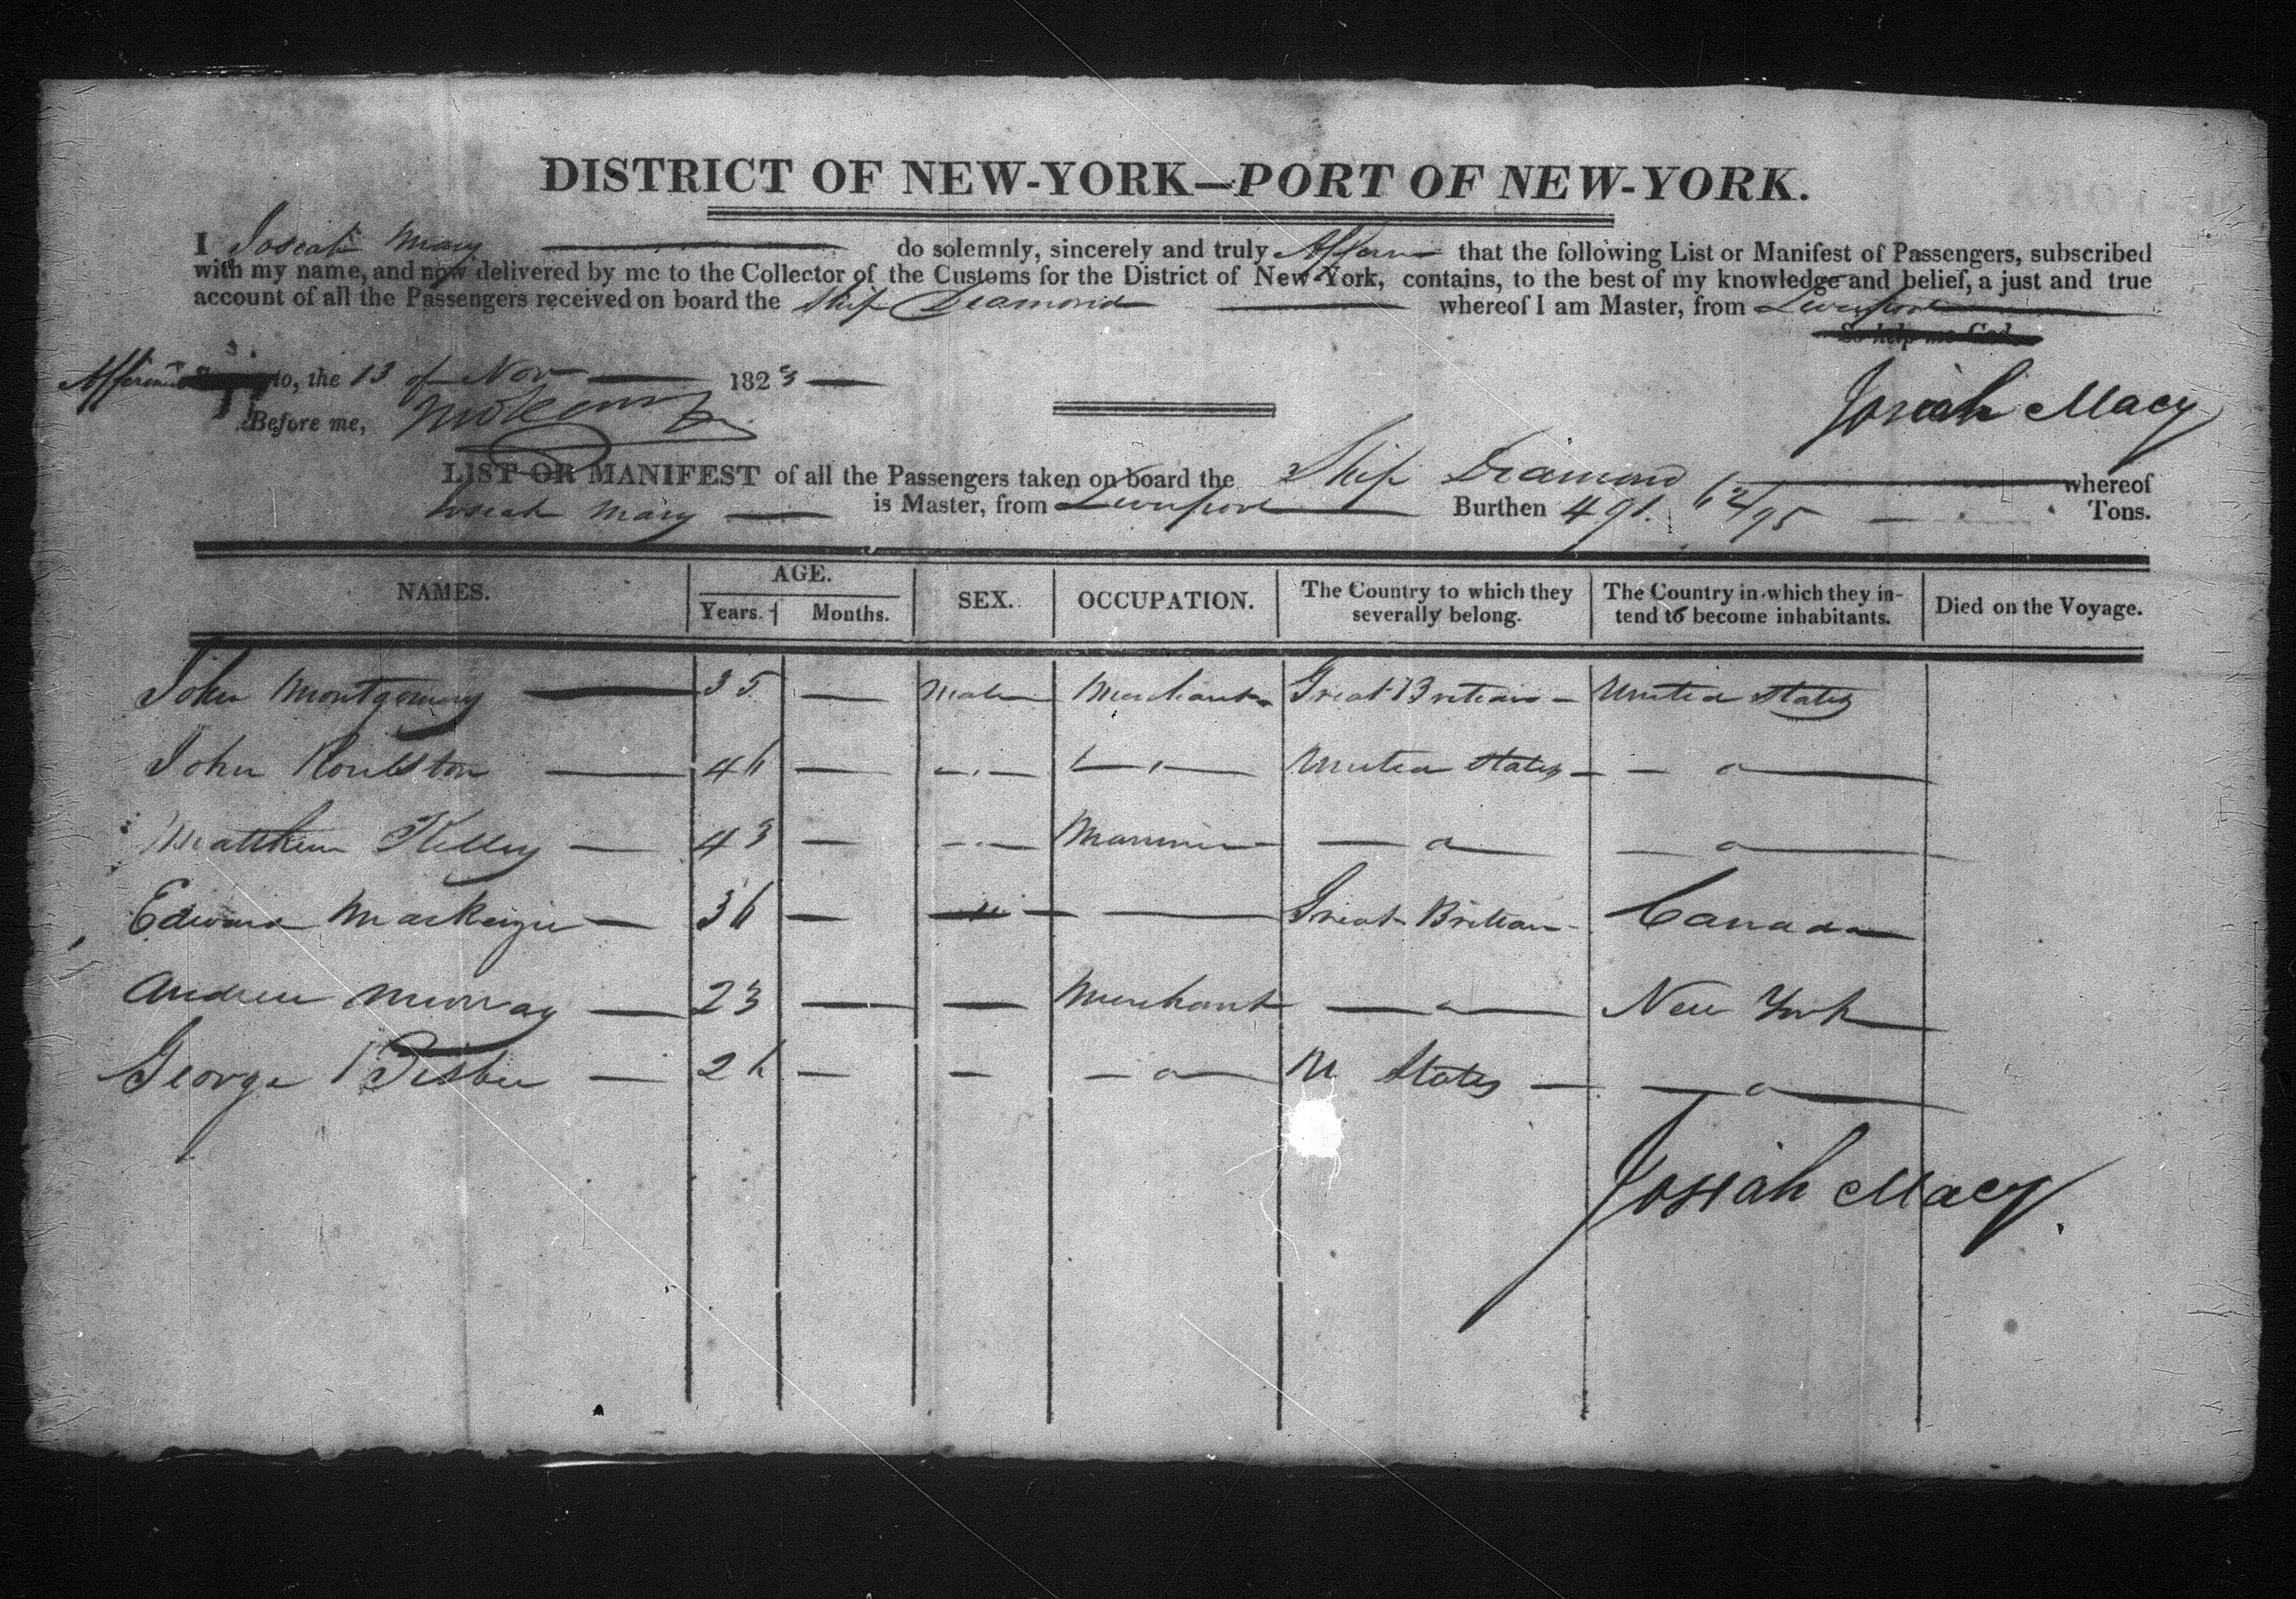 DISTRICT OF NEW-YORK—PORT OF NEW-YORK.
I Josiah Macy do solemnly, sincerely and truly Affirm that the following List or Manifest of Passengers, subscribed
with my name, and now delivered by me to the Collector of the Customs for the District of New-York, contains, to the best of my knowledge and belief, a just and true
account of all the Passengers received on board the Ship Diamond whereof I am Master, from Liverpool
So help me God.
Affirmed to, the 13 of Nov 1823
Josiah Macy
Before me,
LIST OR MANIFEST of all the Passengers taken on board the Ship Diamond whereof
Josiah Macy is Master, from Liverpool Burthen 491. 62/95 Tons.
NAMES. AGE. SEX. OCCUPATION. The Country to which they severally belong. The Country in which they intend to become inhabitants. Died on the Voyage.
Years. Months.
John Montgomery — 35 — Male Merchant Great Britain — United States
John Roulston — 46 — — — United States — — "
Matthew Kelly — 43 — — Mariner — " — — " —
Edward MacKenzie — 36 — " — — Great Britain — Canada
Andrew Murray — 23 — — Merchant — " — New York
George Bisbee — 26 — — — " — U States — — " —
Josiah Macy